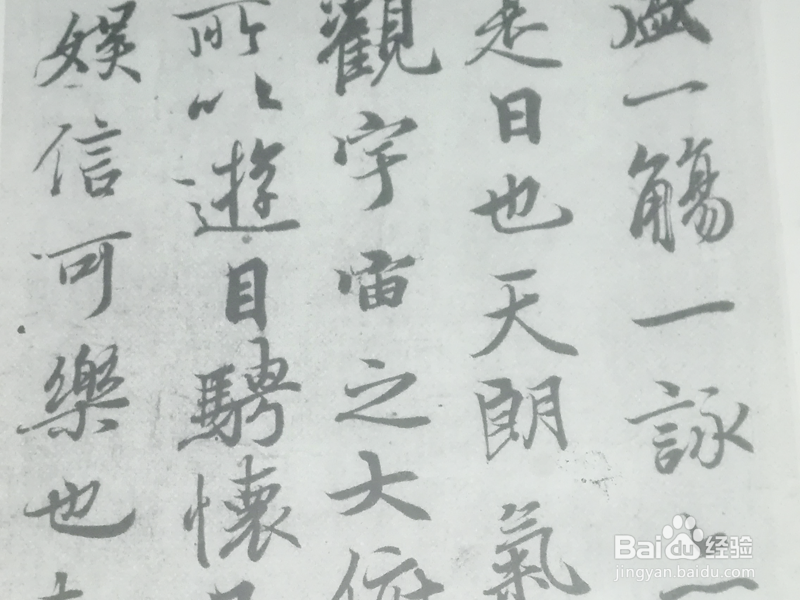 盛一觴一詠
是日也天朗氣
觀宇宙之大俯
所以遊目騁懷
娛信可樂也
Baidu经验
jingyan.baidu.com